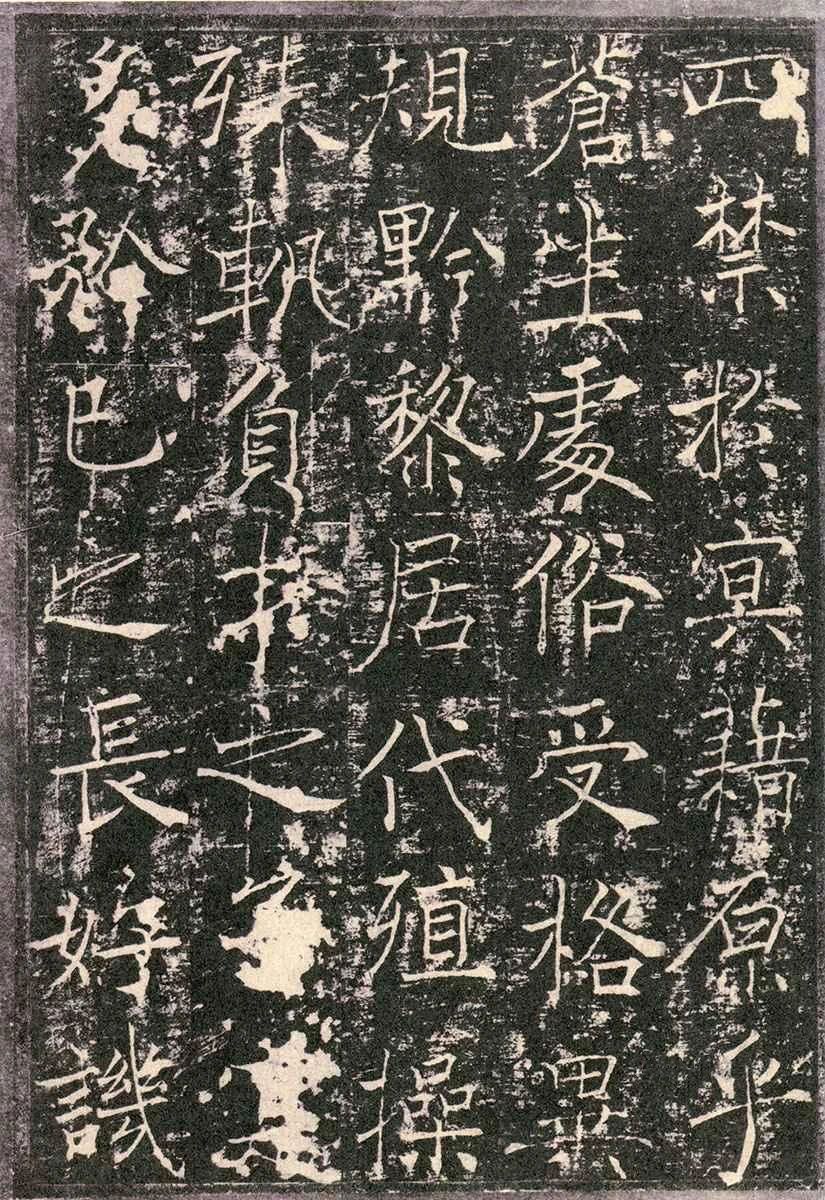 四禁於冥藉原乎
蒼生處俗受格異
規黔黎居代殖操
殊軌負才之
矜已之長好譏